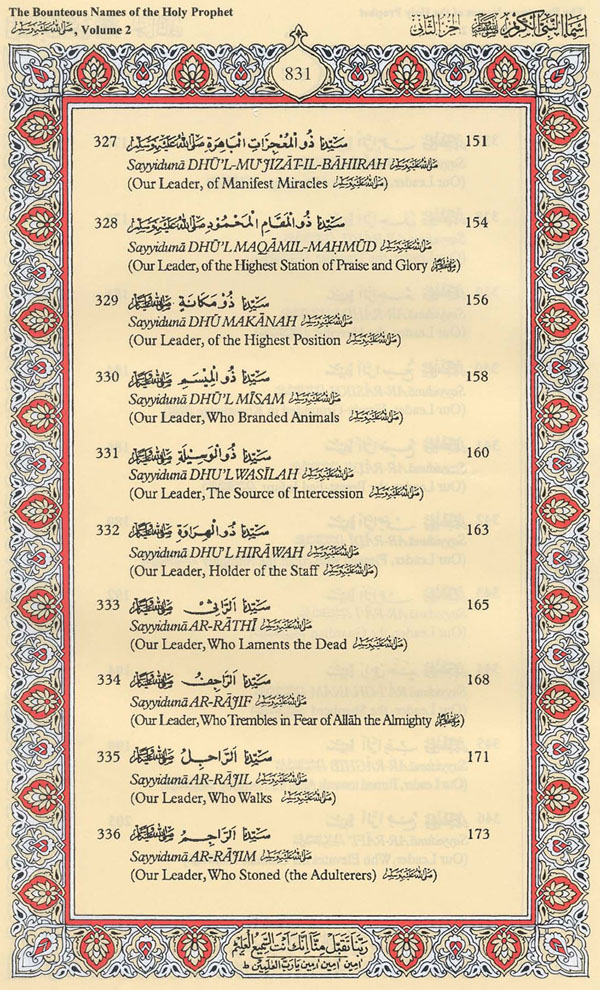 The Bounteous Names of the Holy Prophet
ﷺ, Volume 2
أسماء النبي الكريم ﷺ الجزء الثاني
831
327 سَيِّدُنَا ذُو الْمُعْجِزَاتِ الْبَاهِرَةِ ﷺ 151
Sayyidunā DHŪ'L-MU'JIZĀT-IL-BĀHIRAH ﷺ
(Our Leader, of Manifest Miracles ﷺ)
328 سَيِّدُنَا ذُو الْمَقَامِ الْمَحْمُودِ ﷺ 154
Sayyidunā DHŪ'L MAQĀMIL-MAHMŪD ﷺ
(Our Leader, of the Highest Station of Praise and Glory ﷺ)
329 سَيِّدُنَا ذُوْ مَكَانَةٍ ﷺ 156
Sayyidunā DHŪ MAKĀNAH ﷺ
(Our Leader, of the Highest Position ﷺ)
330 سَيِّدُنَا ذُو الْمِيْسَمِ ﷺ 158
Sayyidunā DHŪ'L MĪSAM ﷺ
(Our Leader, Who Branded Animals ﷺ)
331 سَيِّدُنَا ذُو الْوَسِيْلَةِ ﷺ 160
Sayyidunā DHU'L WASĪLAH ﷺ
(Our Leader, The Source of Intercession ﷺ)
332 سَيِّدُنَا ذُو الْهِرَاوَةِ ﷺ 163
Sayyidunā DHU'L HIRĀWAH ﷺ
(Our Leader, Holder of the Staff ﷺ)
333 سَيِّدُنَا الرَّاثِيْ ﷺ 165
Sayyidunā AR-RĀTHĪ ﷺ
(Our Leader, Who Laments the Dead ﷺ)
334 سَيِّدُنَا الرَّاجِفُ ﷺ 168
Sayyidunā AR-RĀJIF ﷺ
(Our Leader, Who Trembles in Fear of Allāh the Almighty ﷺ)
335 سَيِّدُنَا الرَّاجِلُ ﷺ 171
Sayyidunā AR-RĀJIL ﷺ
(Our Leader, Who Walks ﷺ)
336 سَيِّدُنَا الرَّاجِمُ ﷺ 173
Sayyidunā AR-RĀJIM ﷺ
(Our Leader, Who Stoned (the Adulterers) ﷺ)
رَبَّنَا تَقَبَّلْ مِنَّا إِنَّكَ أَنْتَ السَّمِيعُ الْعَلِيمُ
آمين آمين آمين يا رب العلمين ط